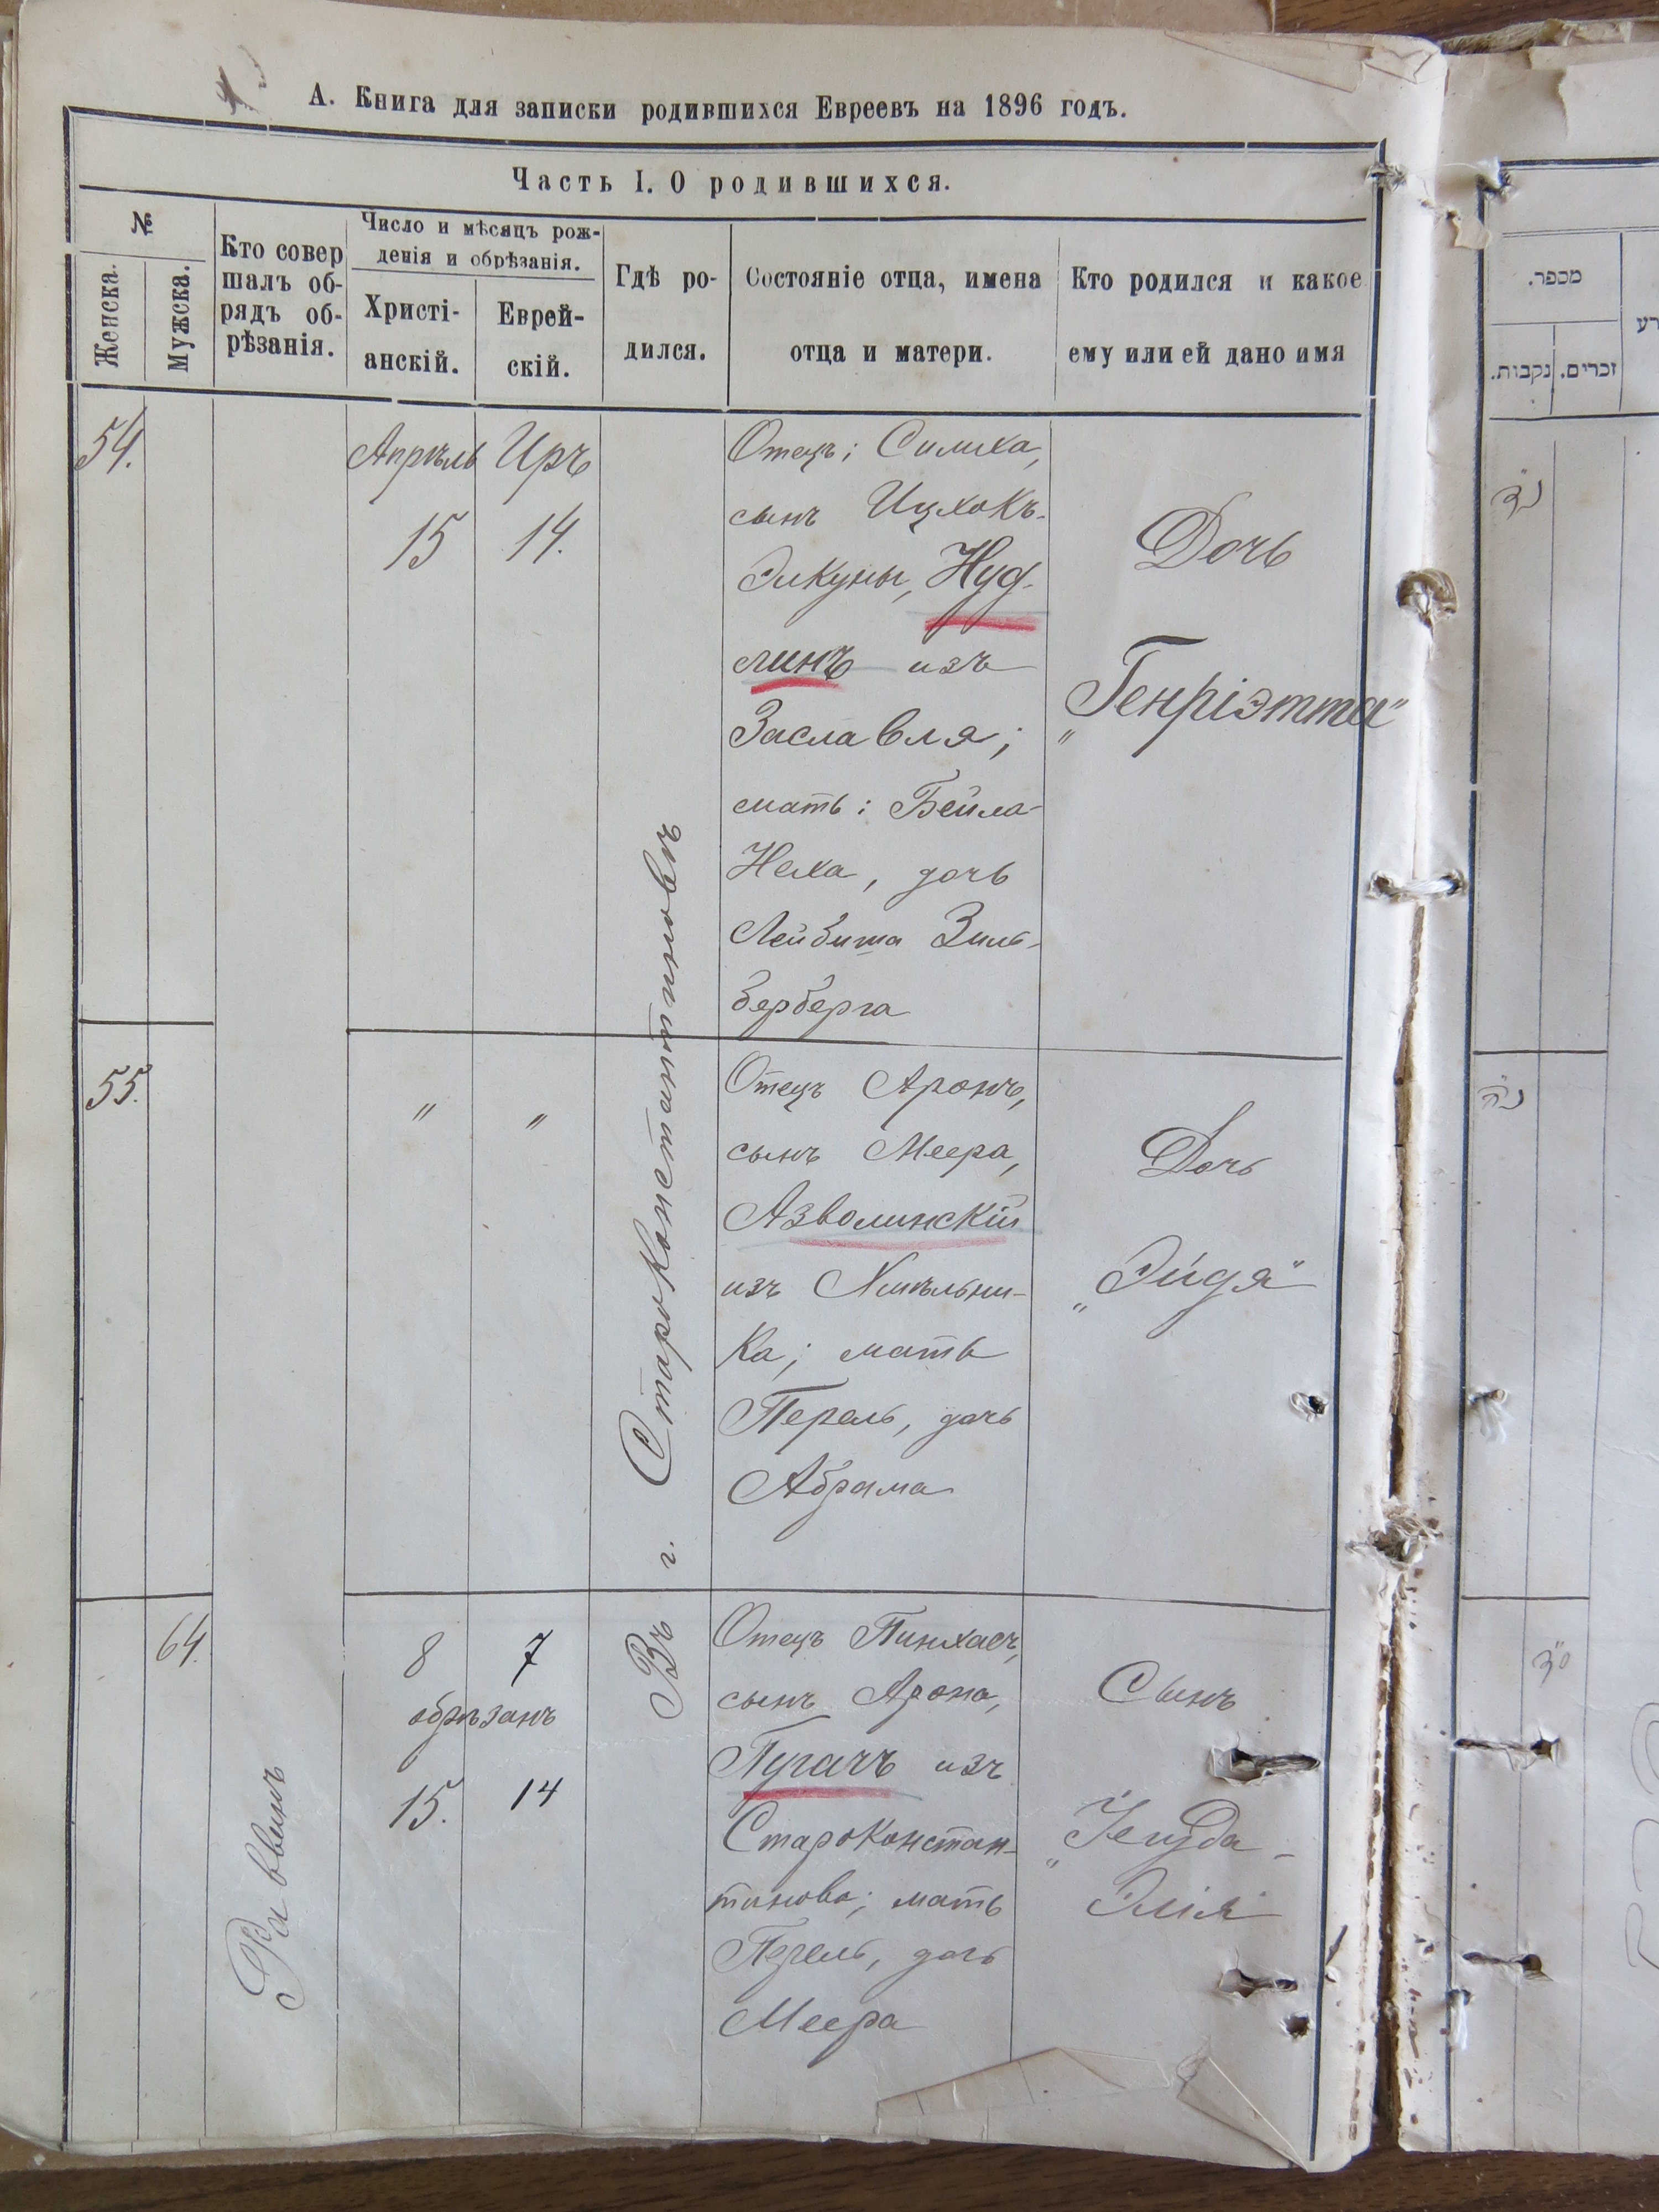 А. Книга для записки родившихся Евреевъ на 1896 годъ.
Часть I. О родившихся.
№
Женска.
Мужска.
Кто совер
шалъ об-
рядъ об-
рѣзанія.
Число и мѣсяцъ рож-
денія и обрѣзанія.
Христі-
анскій.
Еврей-
скій.
Гдѣ ро-
дился.
Состояніе отца, имена
отца и матери.
Кто родился и какое
ему или ей дано имя
54.
Апрѣль
15
Иръ
14.
Отецъ; Симха,
сынъ Ицхокъ-
Элкуны, Нуд-
линъ изъ
Заславля;
мать: Бейла-
Неха, дочь
Лейбиша Зиль-
берберга
Дочь
„Генріэтта"
55.
"
"
Отецъ Аронъ,
сынъ Меера,
Азволинскій
изъ Хмѣльни-
ка; мать
Перель, дочь
Абрама
Дочь
„Эйдя"
64.
Раввинъ
8
7
обрѣзанъ
15.
14
Въ г. Староконстантиновѣ
Отецъ Пинхасъ,
сынъ Арона,
Пугачъ изъ
Староконстан-
тинова; мать
Перель, дочь
Меера
Сынъ
„Іегуда-
Элія"
מספר.
נקבות.
זכרים.
נ"ד
נ"ה
ס"ד